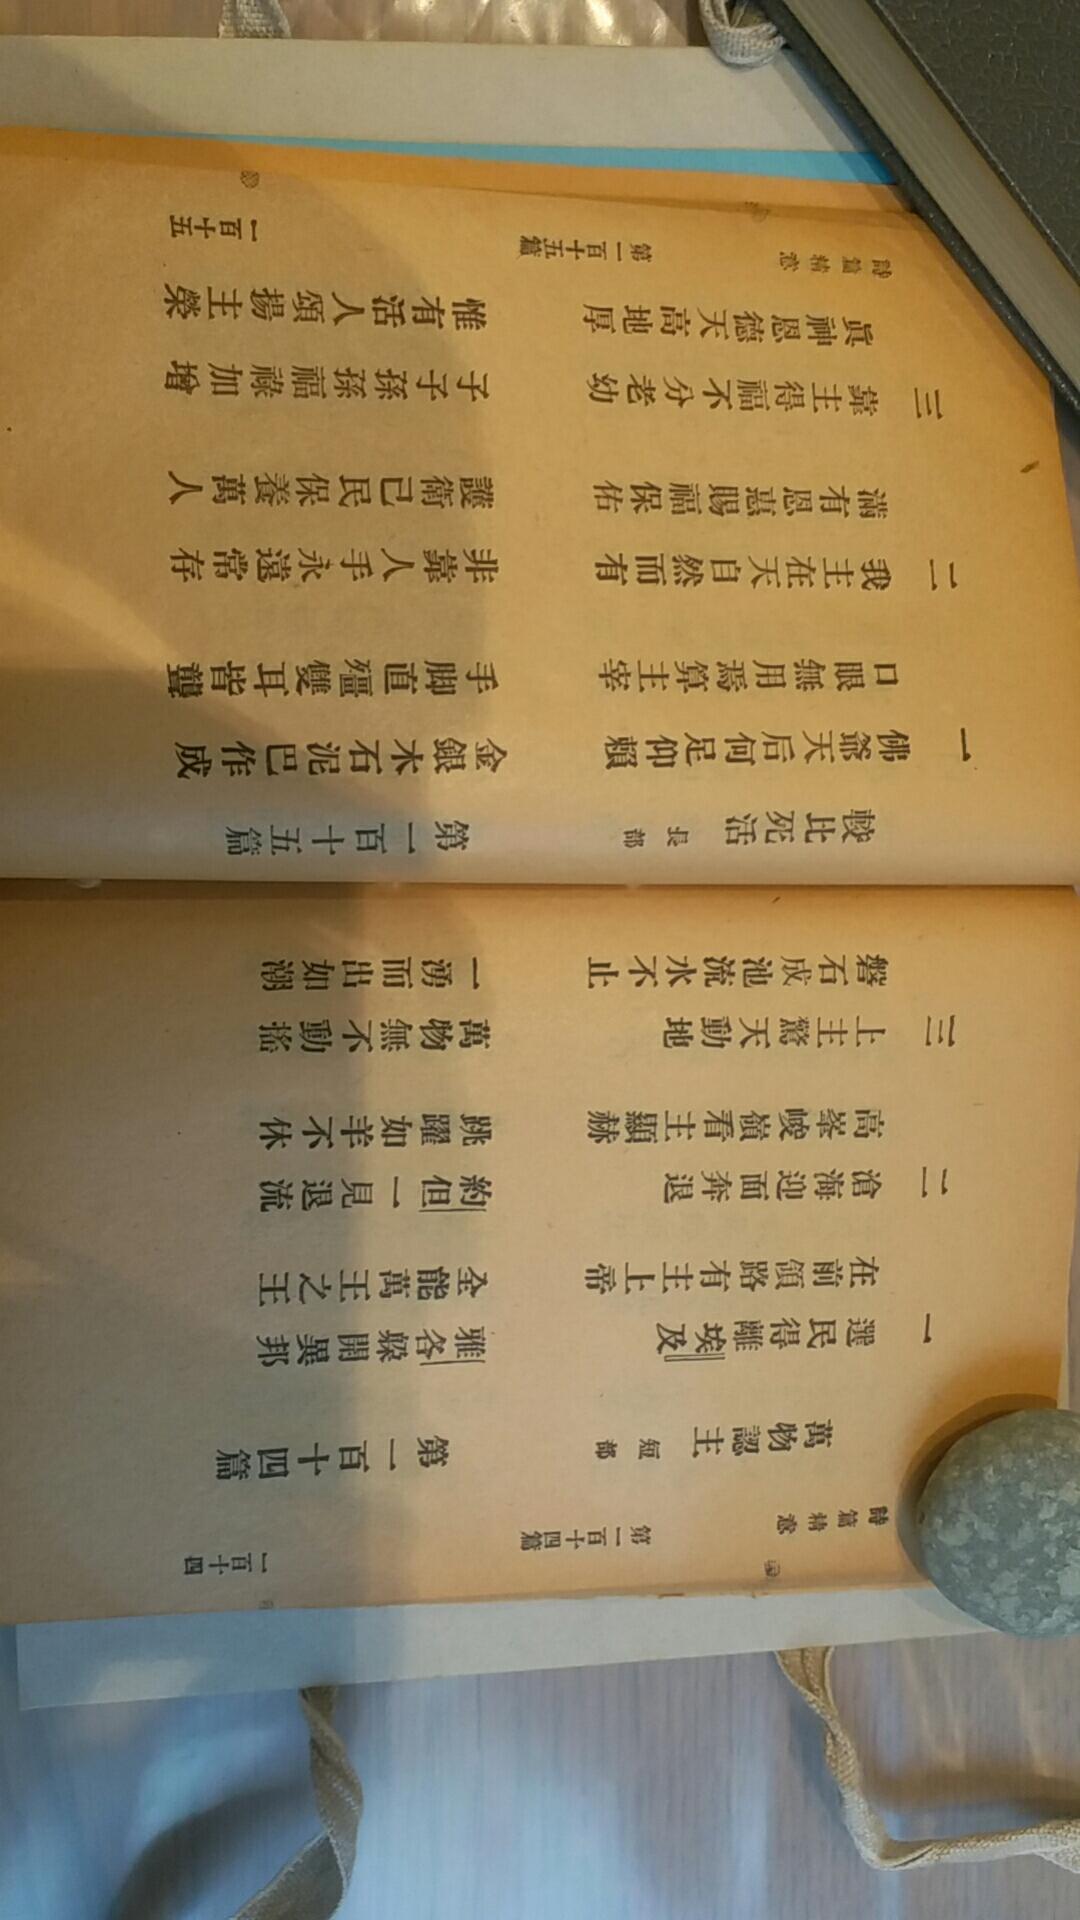 詩篇精意 第一百十四篇 一百十四
萬物認主 短部 第一百十四篇
一 選民得離埃及 雅各躲開異邦
在前領路有主上帝 全能萬王之王
二 滄海迎面奔退 約但一見退流
高峯峻嶺看主顯赫 跳躍如羊不休
三 上主驚天動地 萬物無不動搖
磐石成池流水不止 一湧而出如潮
較比死活 長部 第一百十五篇
一 佛爺天后何足仰賴 金銀木石泥巴作成
口眼無用焉算主宰 手脚直殭雙耳皆聾
二 我主在天自然而有 非靠人手永遠常存
滿有恩惠賜福保佑 護衛己民保養萬人
三 靠主得福不分老幼 子子孫孫福祿加增
眞神恩德天高地厚 惟有活人頌揚主榮
詩篇精意 第一百十五篇 一百十五